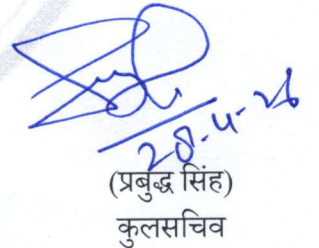 28-4-26
(प्रबुद्ध सिंह)
कुलसचिव